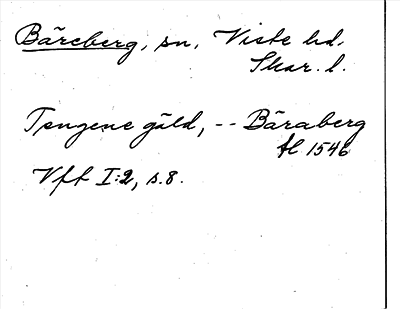 Bäreberg, sn, Viste hd,
Skar. l.
Tengene gäld, -- Bäraberg
fl 1546
Vft I:2, s. 8.